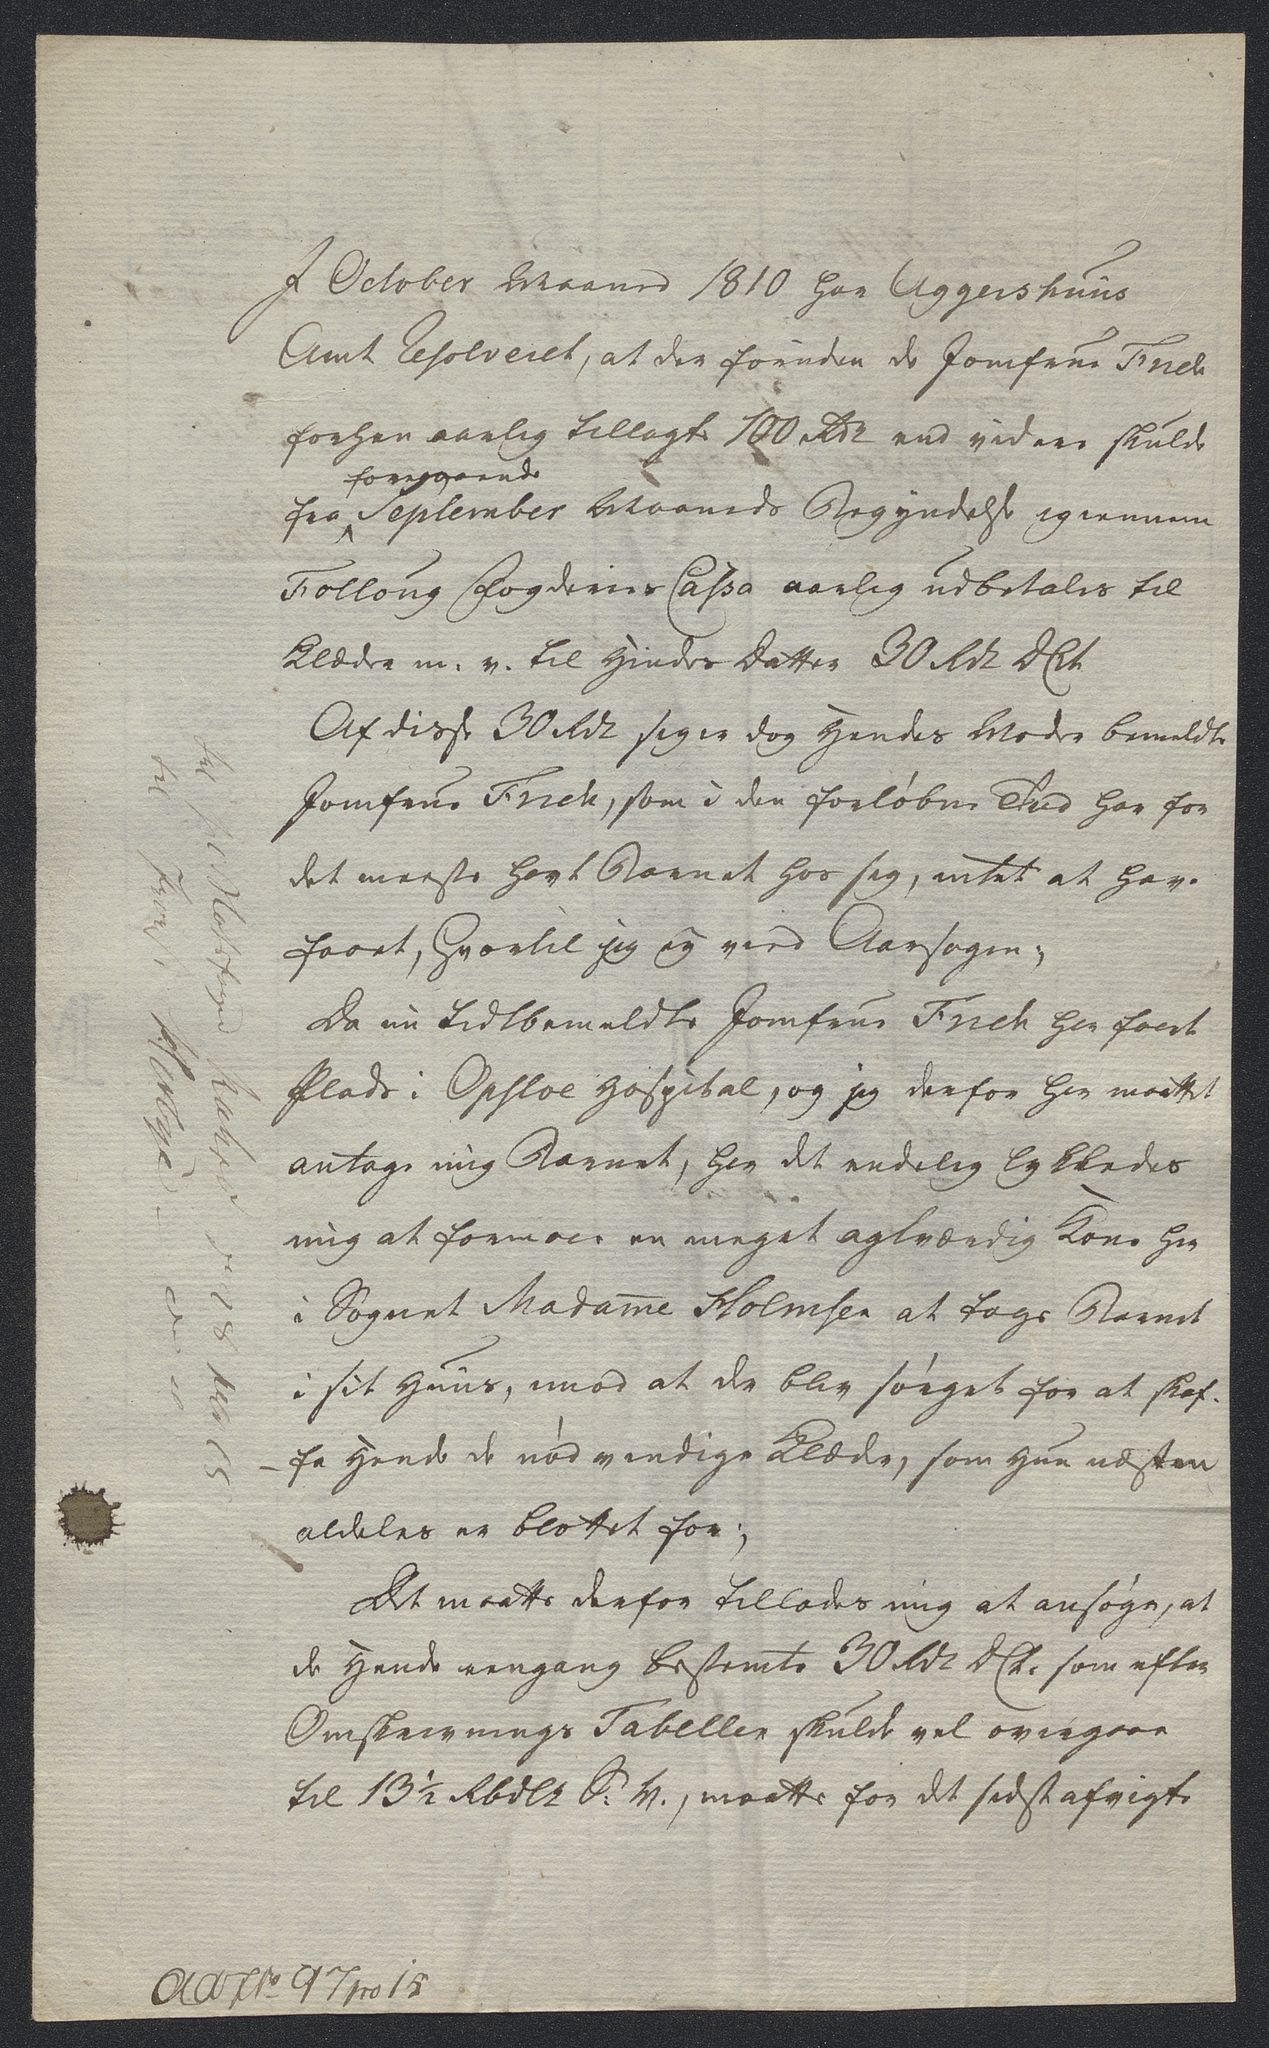 I October Maaned 1810 har Aggershuus
Amt Resolveret, at der foruden de Jomfrue Frich
forhen aarlig tillagte 100 Rdr end videre skulde
foregaaende
fra September Maaneds Begyndelse igiennem
Folloug Fogderies Cassa aarlig udbetales til
Klæder m. v. til Hendes Datter 30 Rdr DCt
Af disse 30 Rdr siger dog Hendes Moder bemeldte
Jomfrue Frich, som i den forløbne Tid har for
det meeste havt Barnet hos sig, intet at have
faaet, hvortil jeg ey veed Aarsagen;
Da nu tidtbemeldte Jomfrue Frich har faaet
Plads i Opsloe Hospital, og jeg derfor har maattet
antage mig Barnet, har det endelig lykkedes
mig at formaae en meget agtværdig Kone her
i Sognet Madame Holmsen at tage Barnet
i sit Huus, mod at der blev sørget for at skaf-
fe Hende de nødvendige Klæder, som Hun næsten
aldeles er blottet for;
Det maatte derfor tillades mig at ansøge, at
de Hende eengang bestemte 30 Rdr DCt. som efter
Omskrivnings Tabellen skulde vel overgaae
til 13½ Rbdlr S. V., maatte for det sidst afvigte
No 97 pro 15